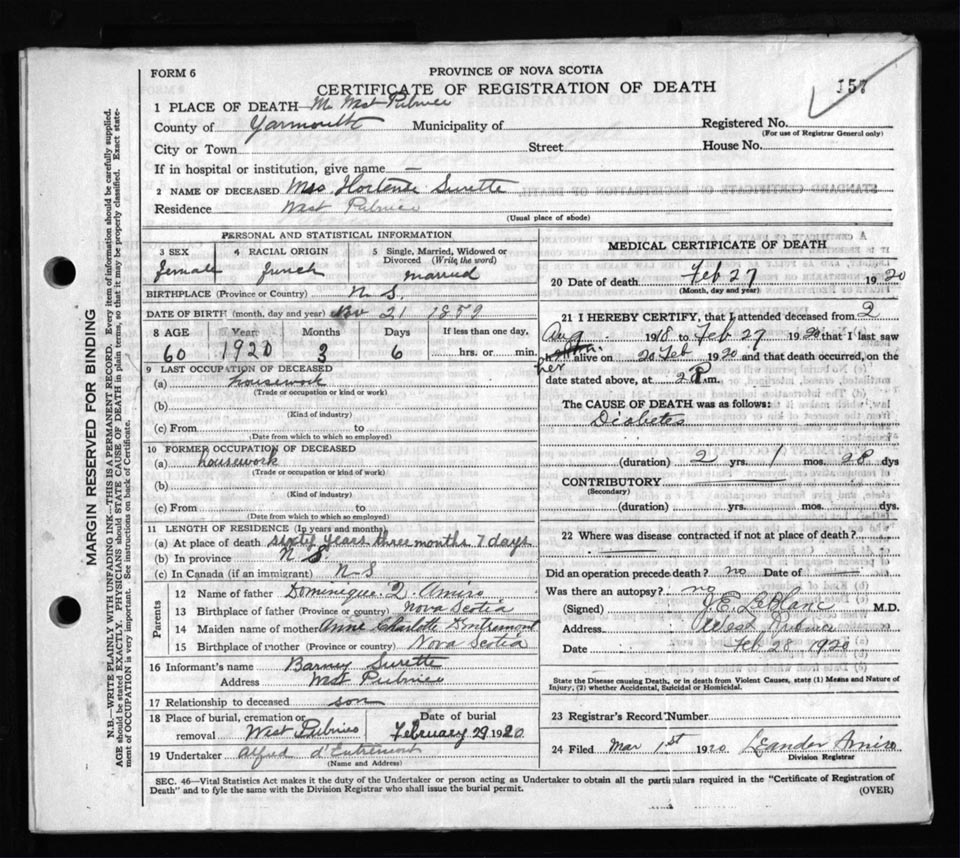 FORM 6
PROVINCE OF NOVA SCOTIA
CERTIFICATE OF REGISTRATION OF DEATH
157
1 PLACE OF DEATH— M. West Pubnico
County of Yarmouth Municipality of Registered No.
(For use of Registrar General only)
City or Town Street House No.
If in hospital or institution, give name —
2 NAME OF DECEASED Mrs. Hortense Surette
Residence West Pubnico
(Usual place of abode)
PERSONAL AND STATISTICAL INFORMATION
3 SEX 4 RACIAL ORIGIN 5 Single, Married, Widowed or
Divorced (Write the word)
female french married
BIRTHPLACE (Province or Country) N S.
DATE OF BIRTH (month, day and year) Nov 21 1859
8 AGE Years Months Days If less than one day,
60 1920 3 6 hrs. or min.
9 LAST OCCUPATION OF DECEASED
(a) housework
(Trade or occupation or kind or work)
(b)
(Kind of industry)
(c) From to
(Date from which to which so employed)
10 FORMER OCCUPATION OF DECEASED
(a) housework
(Trade or occupation or kind of work)
(b)
(Kind of industry)
(c) From to
(Date from which to which so employed)
11 LENGTH OF RESIDENCE (In years and months)
(a) At place of death sixty years three months 7 days
(b) In province N S.
(c) In Canada (if an immigrant) N S
Parents
12 Name of father Dominique Amiro
13 Birthplace of father (Province or country) Nova Scotia
14 Maiden name of mother Anne Charlotte Dentremont
15 Birthplace of mother (Province or country) Nova Scotia
16 Informant's name Barney Surette
Address West Pubnico
17 Relationship to deceased son
18 Place of burial, cremation or Date of burial
removal West Pubnico February 29 1920
19 Undertaker Alfred d'Entremont
(Name and Address)
MEDICAL CERTIFICATE OF DEATH
20 Date of death Feb 27 1920
(Month, day and year)
21 I HEREBY CERTIFY, that I attended deceased from 2
Aug 1918 to Feb 27 1920 that I last saw
her alive on 20 Feb 1920 and that death occurred, on the
date stated above, at 2 P.m.
The CAUSE OF DEATH was as follows:
Diabetes
(duration) 2 yrs. 1 mos. 28 dys
CONTRIBUTORY
(Secondary)
(duration) yrs. mos. dys.
22 Where was disease contracted if not at place of death?
Did an operation precede death? no Date of
Was there an autopsy? no
(Signed) J. E. LeBlanc M.D.
Address West Pubnico
Date Feb 28 1920
State the Disease causing Death, or in death from Violent Causes, state (1) Means and Nature of
Injury, (2) whether Accidental, Suicidal or Homicidal.
23 Registrar's Record Number
24 Filed Mar 1st 1920 Leander Amiro
Division Registrar
SEC. 46—Vital Statistics Act makes it the duty of the Undertaker or person acting as Undertaker to obtain all the particulars required in the "Certificate of Registration of
Death" and to fyle the same with the Division Registrar who shall issue the burial permit. (OVER)
MARGIN RESERVED FOR BINDING
N.B.—WRITE PLAINLY WITH UNFADING INK.—THIS IS A PERMANENT RECORD. Every item of information should be carefully supplied.
AGE should be stated EXACTLY. PHYSICIANS should STATE CAUSE OF DEATH in plain terms, so that it may be properly classified. Exact state-
ment of OCCUPATION is very important. See instructions on back of Certificate.